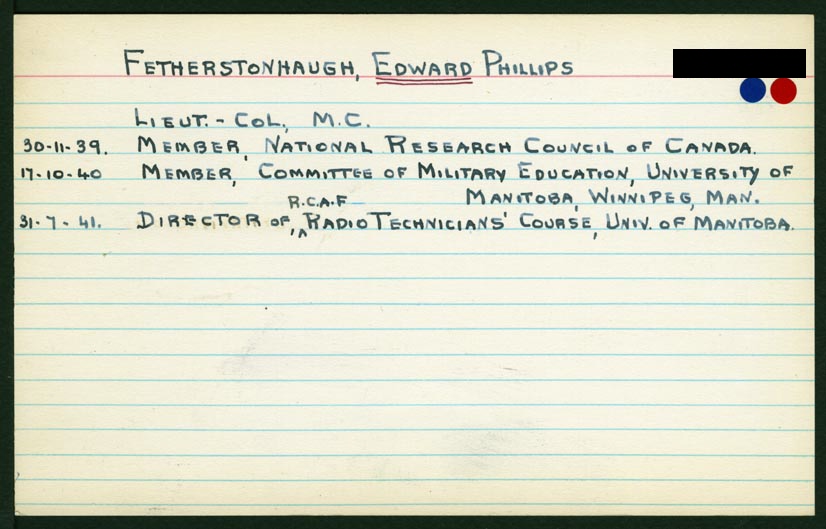 FETHERSTONHAUGH, EDWARD PHILLIPS
LIEUT.-COL., M.C.
30-11-39. MEMBER, NATIONAL RESEARCH COUNCIL OF CANADA.
17-10-40 MEMBER, COMMITTEE OF MILITARY EDUCATION, UNIVERSITY OF
MANITOBA, WINNIPEG, MAN.
R.C.A.F
31-7-41. DIRECTOR OF, ^ RADIO TECHNICIANS' COURSE, UNIV. OF MANITOBA.